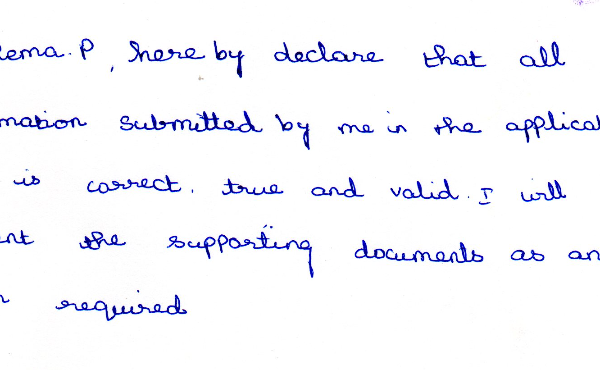 ema. P, here by declare that all
mation submitted by me in the applicat
is correct. true and valid. I will
ent the supporting documents as an
required